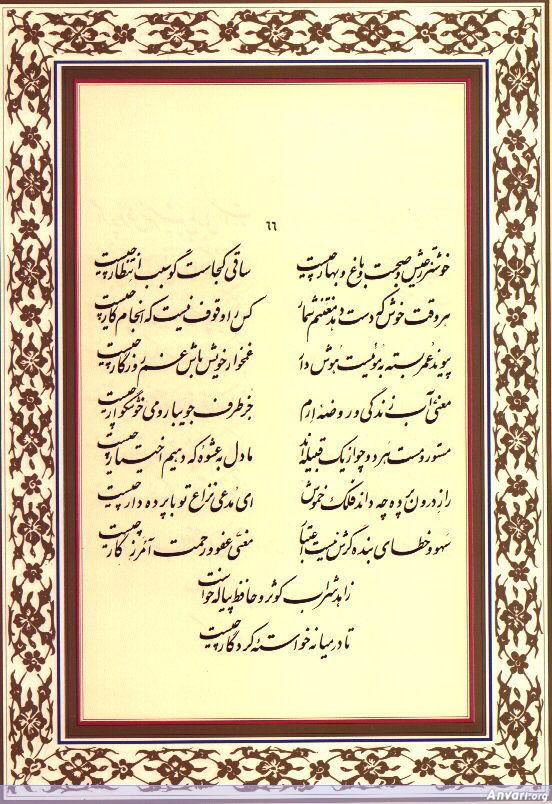 ٦٦
خوشتر ز عیش و صحبت و باغ و بهار چیست ساقی کجاست گو سبب انتظار چیست
هر وقت خوش که دست دهد مغتنم شمار کس را وقوف نیست که انجام کار چیست
پیوند عمر بسته به موئیست هوش دار غمخوار خویش باش غم روزگار چیست
معنی آب زندگی و روضهٔ ارم جز طرف جویبار و می خوشگوار چیست
مستور و مست هر دو چو از یک قبیله‌اند ما دل به عشوهٔ که دهیم اختیار چیست
راز درون پرده چه داند فلک خموش ای مدعی نزاع تو با پرده دار چیست
سهو و خطای بنده گرش نیست اعتبار معنی عفو و رحمت آمرزگار چیست
زاهد شراب کوثر و حافظ پیاله خواست
تا در میانه خواستهٔ کردگار چیست
Anvari.org